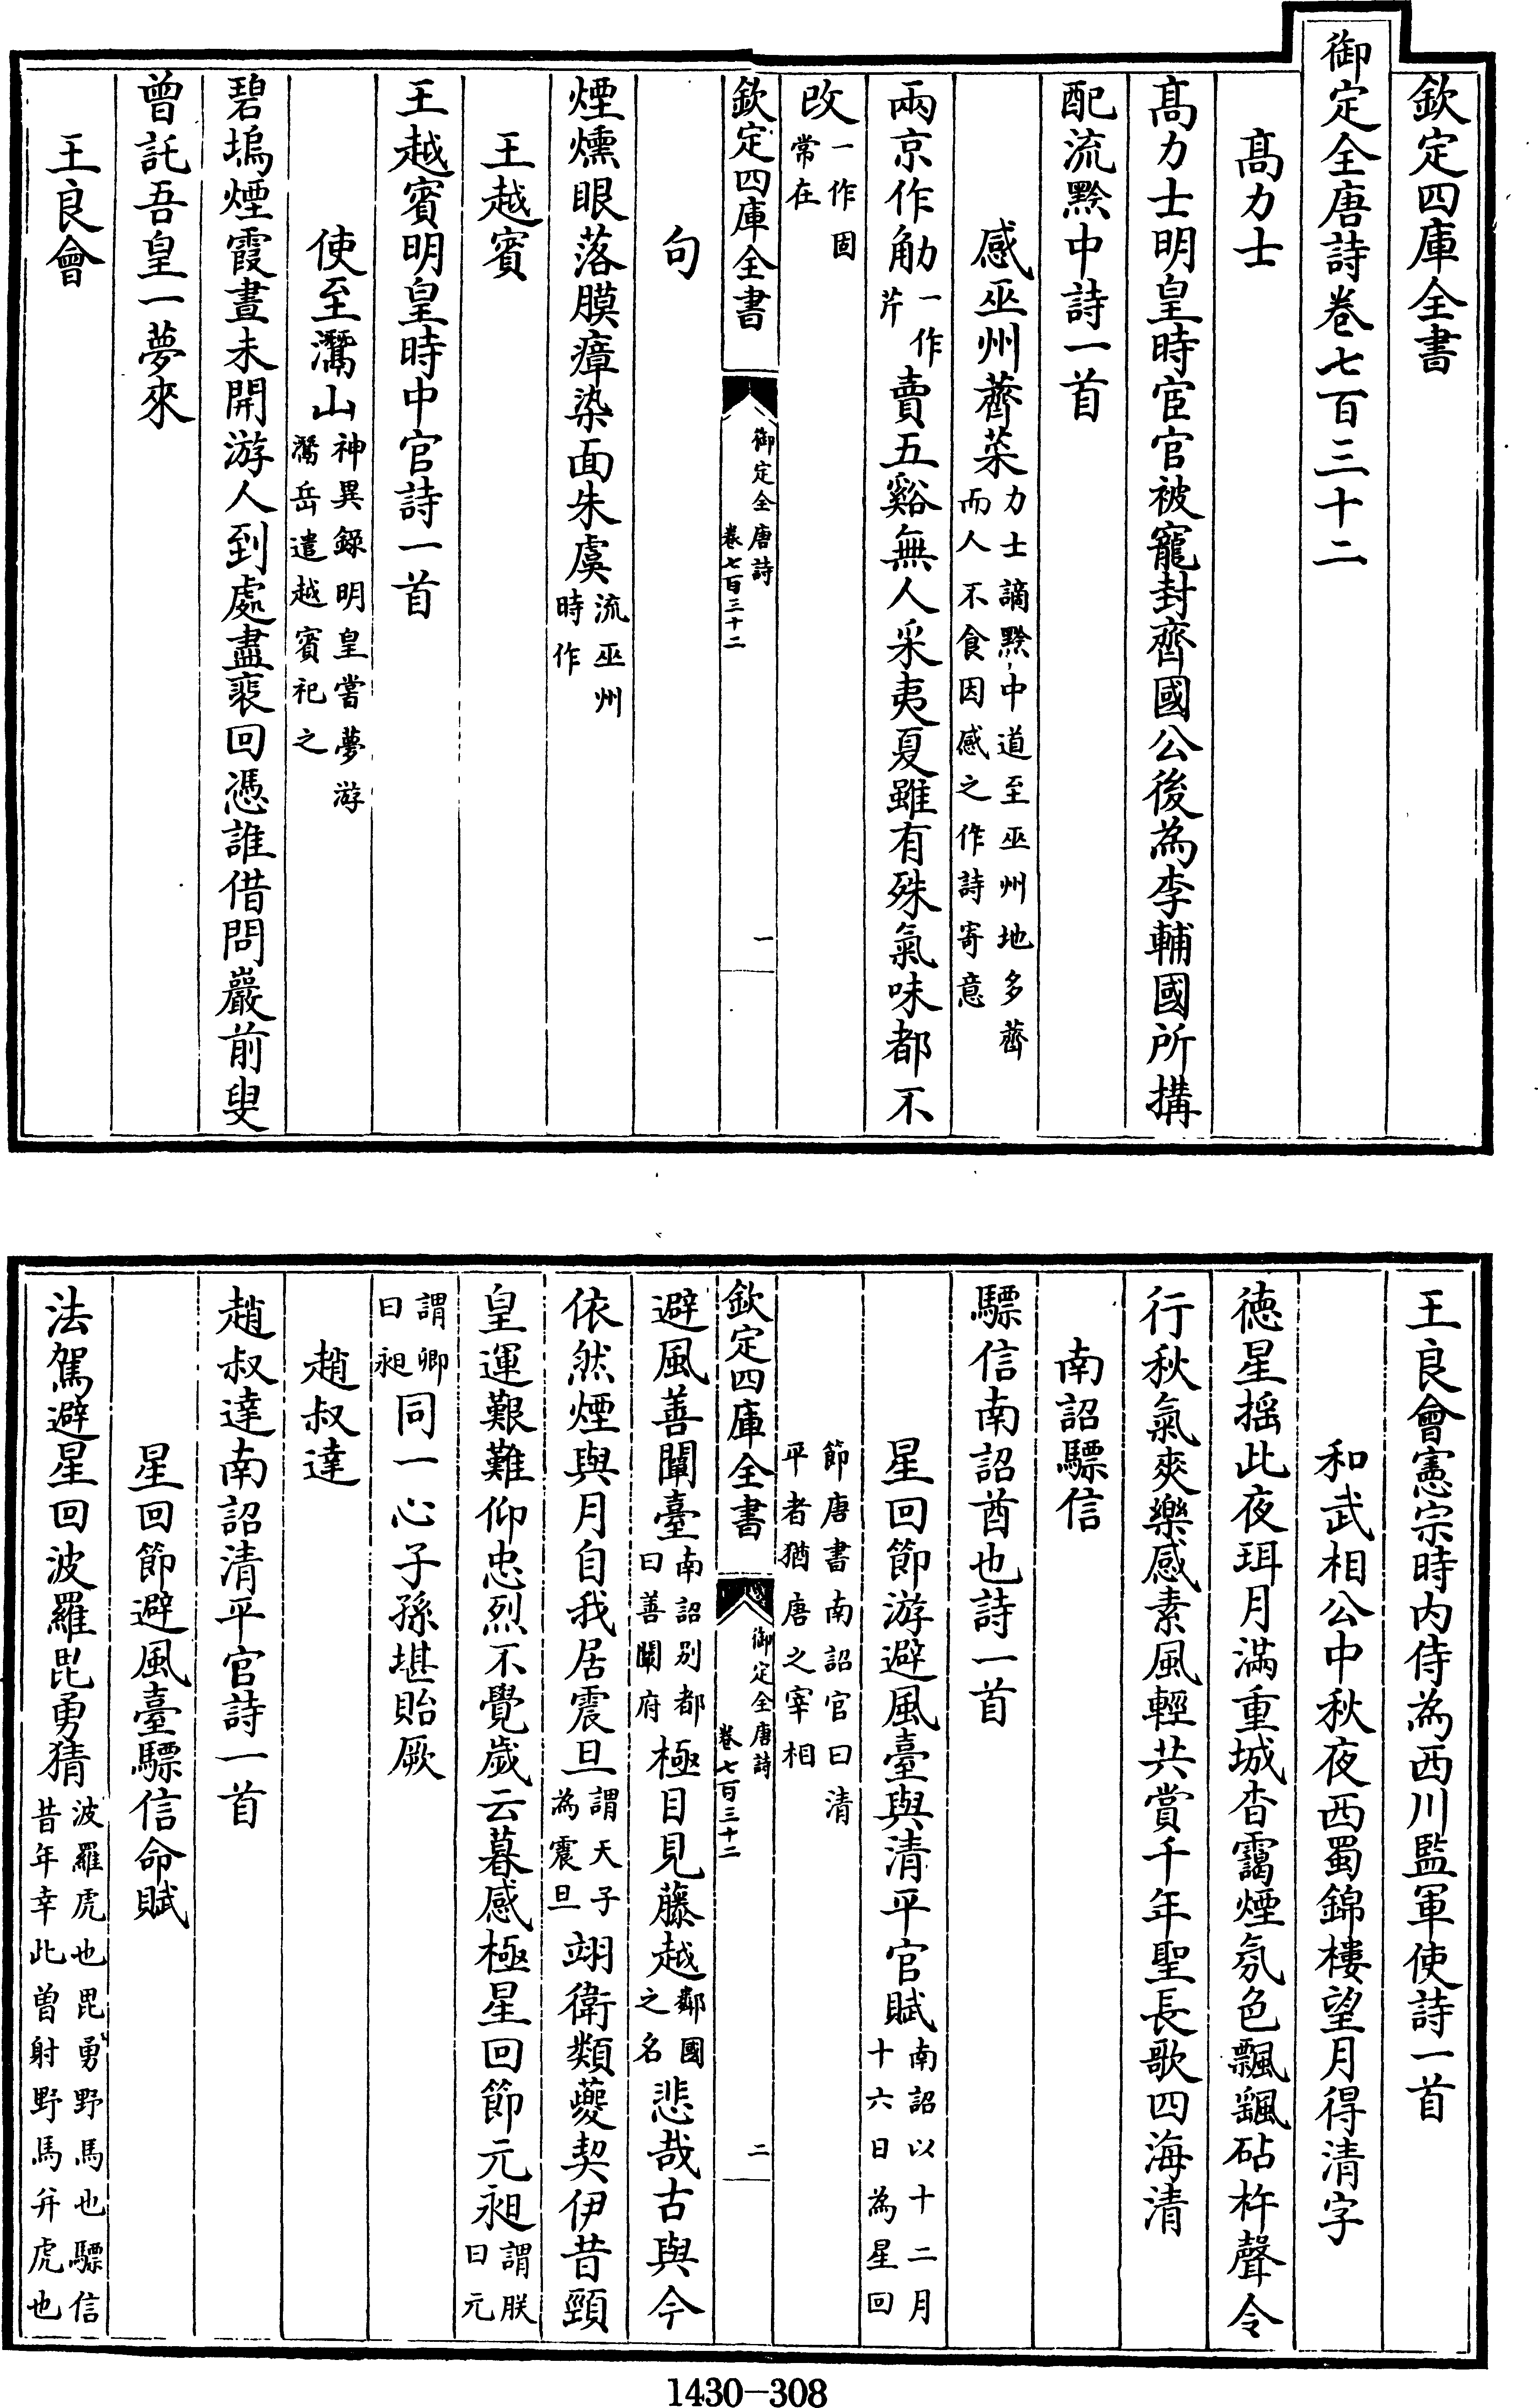 欽定四庫全書
御定全唐詩卷七百三十二
高力士
高力士明皇時宦官被寵封齊國公後為李輔國所搆
配流黔中詩一首
感巫州薺菜力士謫黔中道至巫州地多薺而人不食因感之作詩寄意
兩京作觔一作芹賣五谿無人采夷夏雖有殊氣味都不
改一作固常在
欽定四庫全書 御定全唐詩卷七百三十二 一
句
煙燻眼落膜瘴染面朱虞流巫州時作
王越賓
王越賓明皇時中官詩一首
使至灊山神異録明皇嘗夢游灊岳遣越賓祀之
碧塢煙霞晝未開游人到處盡裵回憑誰借問巖前叟
曾託吾皇一夢來
王良會
王良會憲宗時内侍為西川監軍使詩一首
和武相公中秋夜西蜀錦樓望月得清字
德星揺此夜珥月滿重城杳靄煙氛色飄飖砧杵聲令
行秋氣爽樂感素風輕共賞千年聖長歌四海清
南詔驃信
驃信南詔酋也詩一首
星回節游避風臺與清平官賦南詔以十二月十六日為星回
節唐書南詔官曰清平者猶唐之宰相
欽定四庫全書 御定全唐詩卷七百三十二 二
避風善闡臺南詔别都曰善闡府極目見藤越鄰國之名悲哉古與今
依然煙與月自我居震旦謂天子為震旦翊衛類夔契伊昔頸
皇運艱難仰忠烈不覺歲云暮感極星回節元昶謂朕曰元
謂卿曰昶同一心子孫堪貽厥
趙叔達
趙叔達南詔清平官詩一首
星回節避風臺驃信命賦
法駕避星回波羅毘勇猜波羅虎也毘勇野馬也驃信昔年幸此曽射野馬并虎也
1430-308